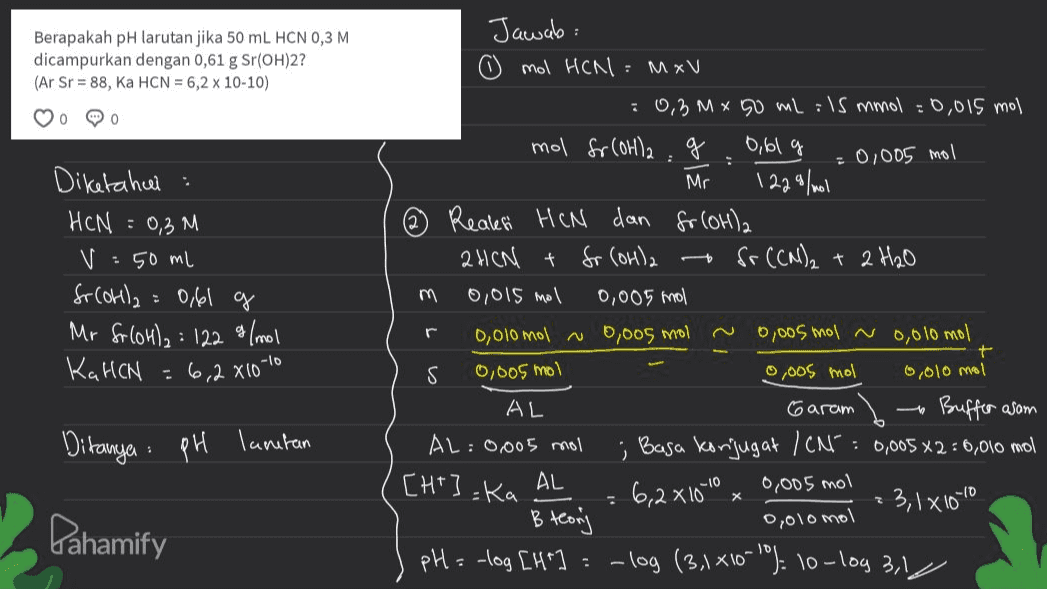 Berapakah pH larutan jika 50 mL HCN 0,3 M
dicampurkan dengan 0,61 g Sr(OH)2?
(Ar Sr = 88, Ka HCN = 6,2 x 10-10)
0 0
Diketahui :
HCN = 0,3 M
V = 50 mL
Sr(OH)₂ = 0,61 g
Mr Sr(OH)₂ : 122 g/mol
Ka HCN = 6,2 x10⁻¹⁰
Ditanya : pH larutan
Pahamify
Jawab :
① mol HCN = M x V
= 0,3 M x 50 mL = 15 mmol = 0,015 mol
mol Sr(OH)₂ = g/Mr = 0,61 g / 122 g/mol = 0,005 mol
② Reaksi HCN dan Sr(OH)₂
2 HCN + Sr(OH)₂ → Sr(CN)₂ + 2 H₂O
m 0,015 mol 0,005 mol
r 0,010 mol ~ 0,005 mol ~ 0,005 mol ~ 0,010 mol +
s 0,005 mol - 0,005 mol 0,010 mol
AL Garam → Buffer asam
AL : 0,005 mol ; Basa konjugat / CN⁻ : 0,005 x 2 = 0,010 mol
[H⁺] = Ka AL / B konj = 6,2 x 10⁻¹⁰ x 0,005 mol / 0,010 mol = 3,1 x 10⁻¹⁰
pH = -log [H⁺] = -log (3,1 x10⁻¹⁰) = 10 - log 3,1